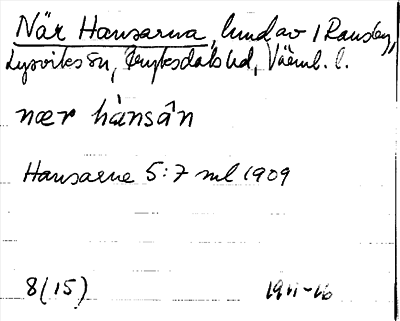 När Hansarna, lund av 1 Ransby,
Lysviks sn, Fryksdals hd, Värml. l.
nær hànsân
Hansarne 5:7 ml 1909
8(15) 1911-16